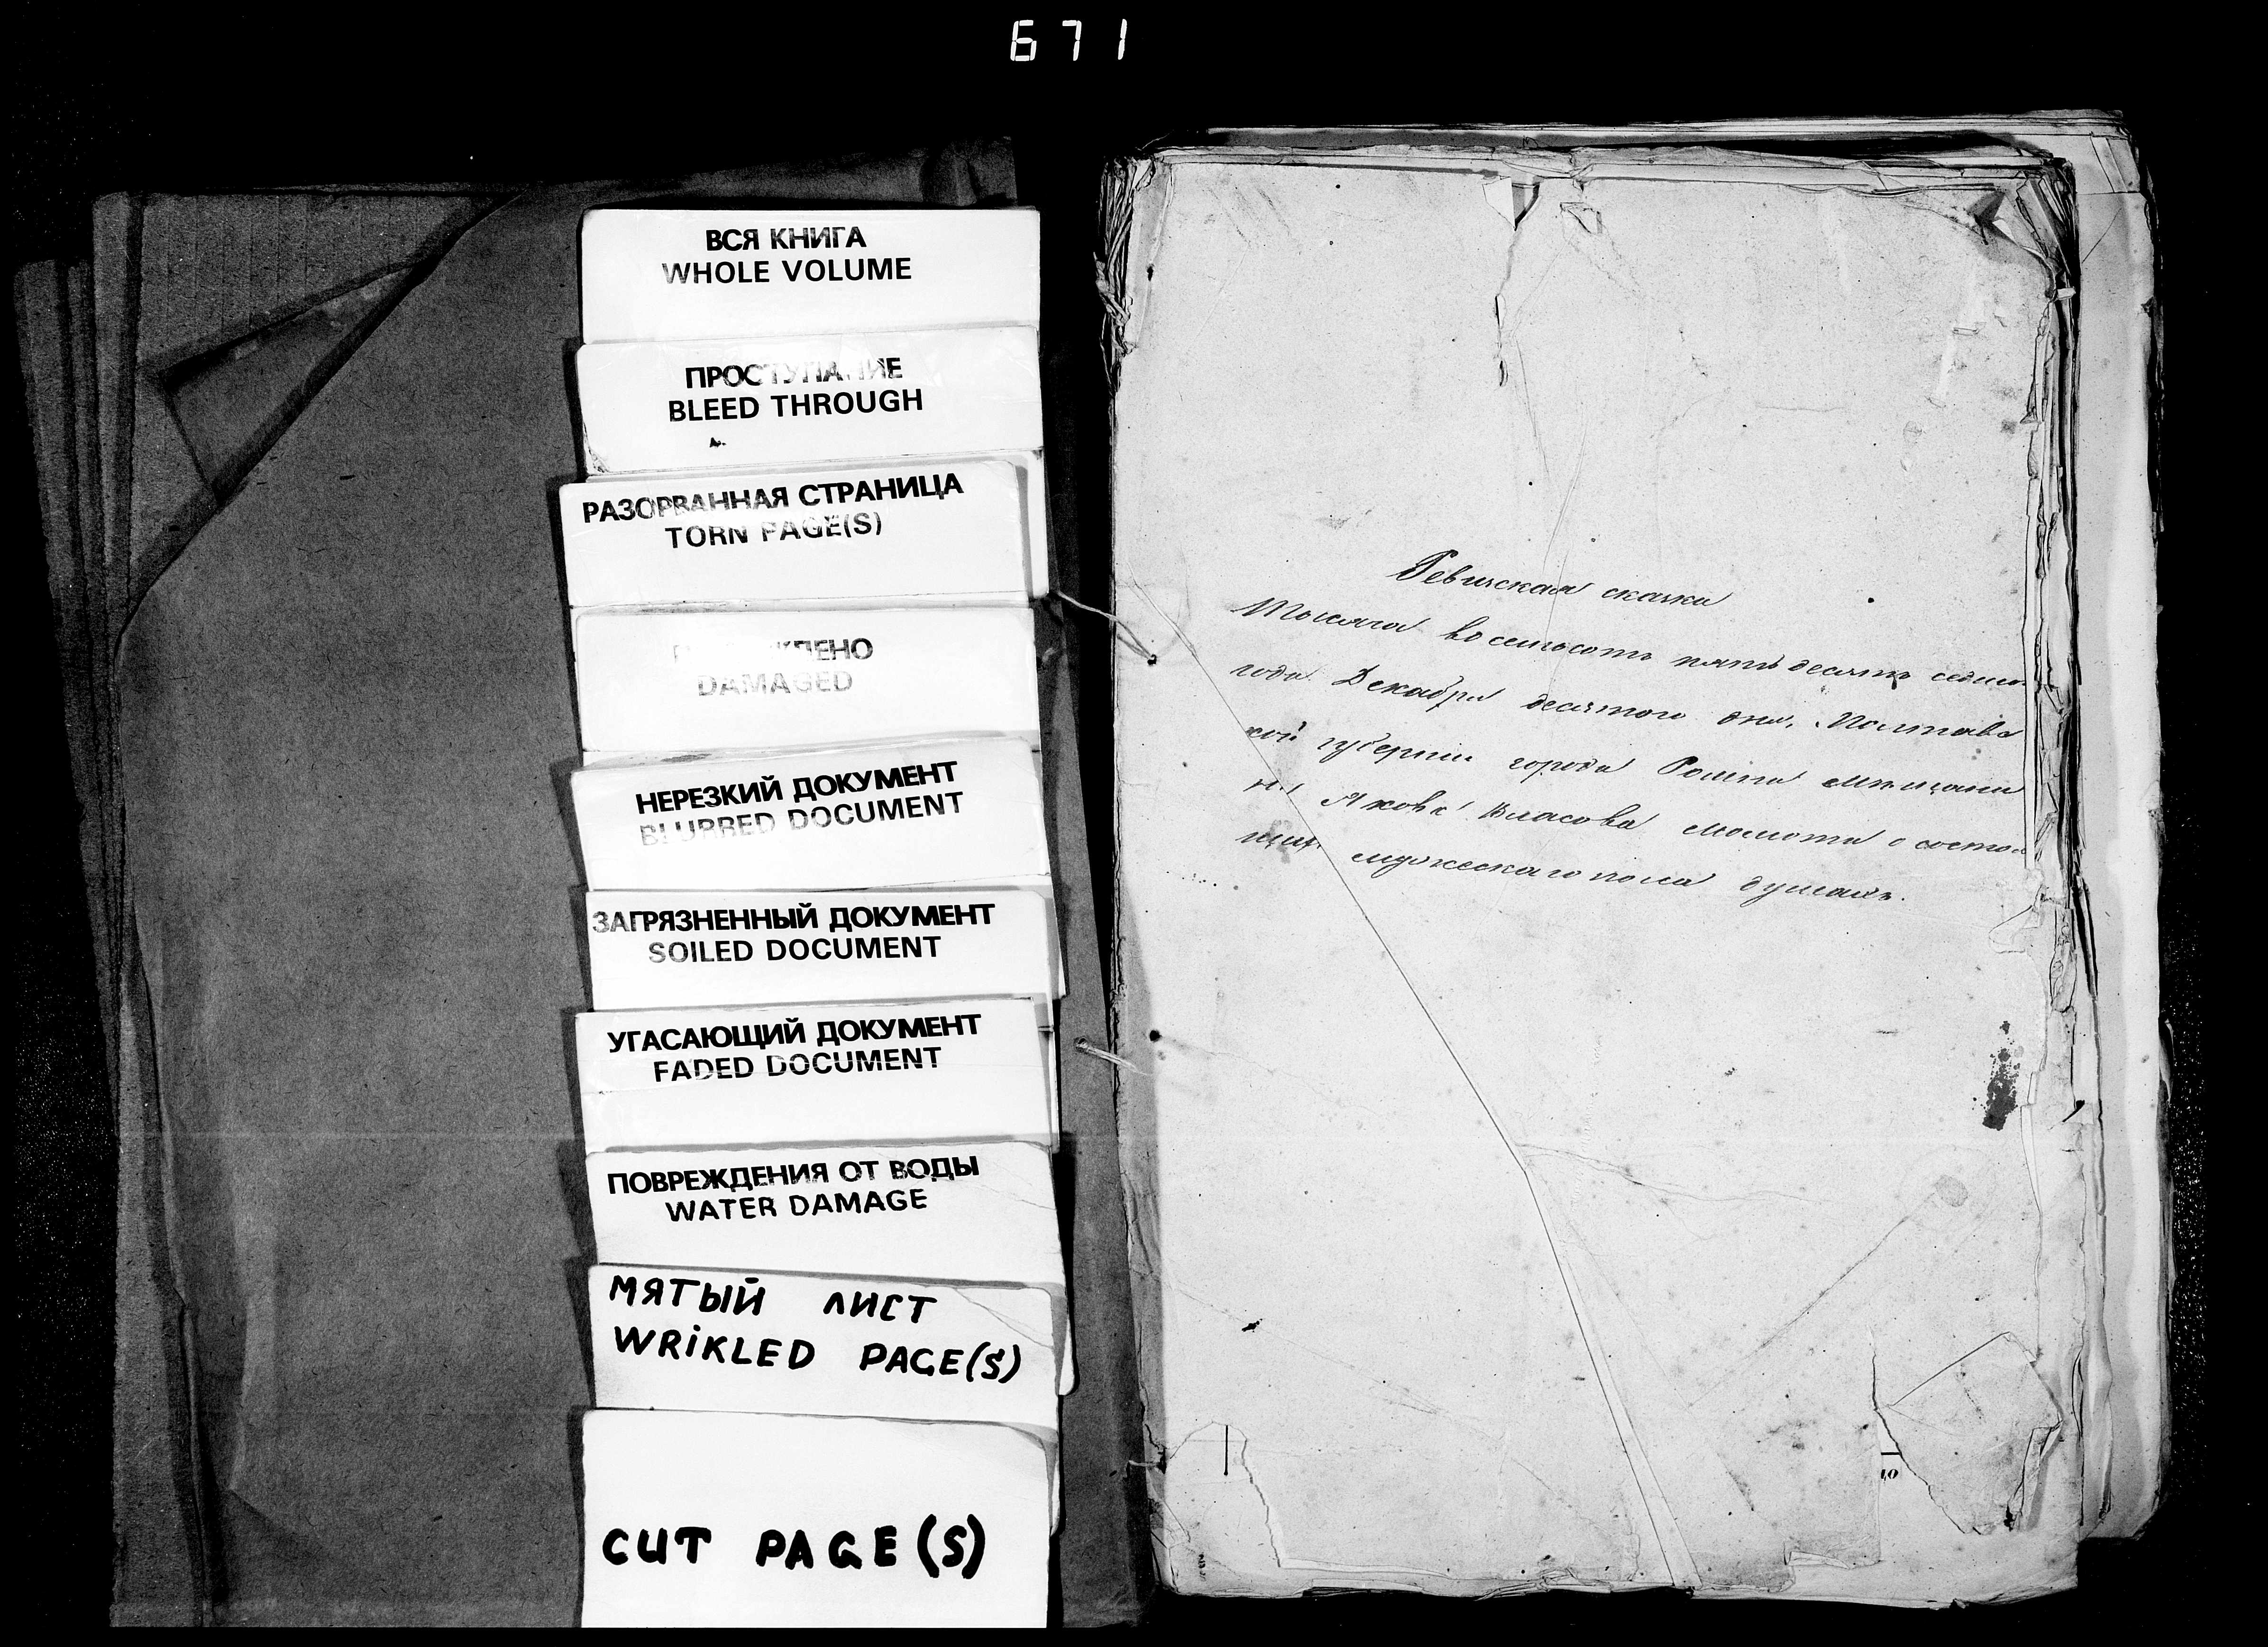 671
ВСЯ КНИГА
WHOLE VOLUME
ПРОСТУПАНИЕ
BLEED THROUGH
РАЗОРВАННАЯ СТРАНИЦА
TORN PAGE(S)
DAMAGED
НЕРЕЗКИЙ ДОКУМЕНТ
BLURRED DOCUMENT
ЗАГРЯЗНЕННЫЙ ДОКУМЕНТ
SOILED DOCUMENT
УГАСАЮЩИЙ ДОКУМЕНТ
FADED DOCUMENT
ПОВРЕЖДЕНИЯ ОТ ВОДЫ
WATER DAMAGE
МЯТЫЙ ЛИСТ
WRIKLED PAGE(S)
CUT PAGE(S)
Ревизская сказка
Тысяча восемьсотъ пятьдесятъ седмо
года Декабря десятого дня, Полтавс
кой губернии города Ромна мещани
на Якова Власова Момота о состоя
щихъ мужескаго пола душахъ.
10